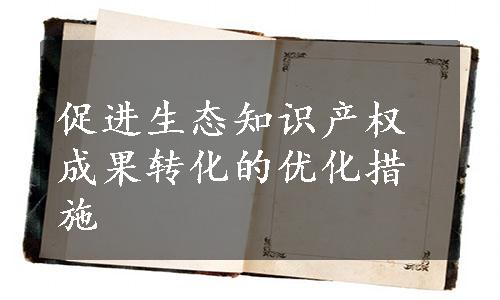 促进生态知识产权
成果转化的优化措
施